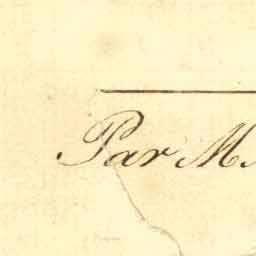 Par M.